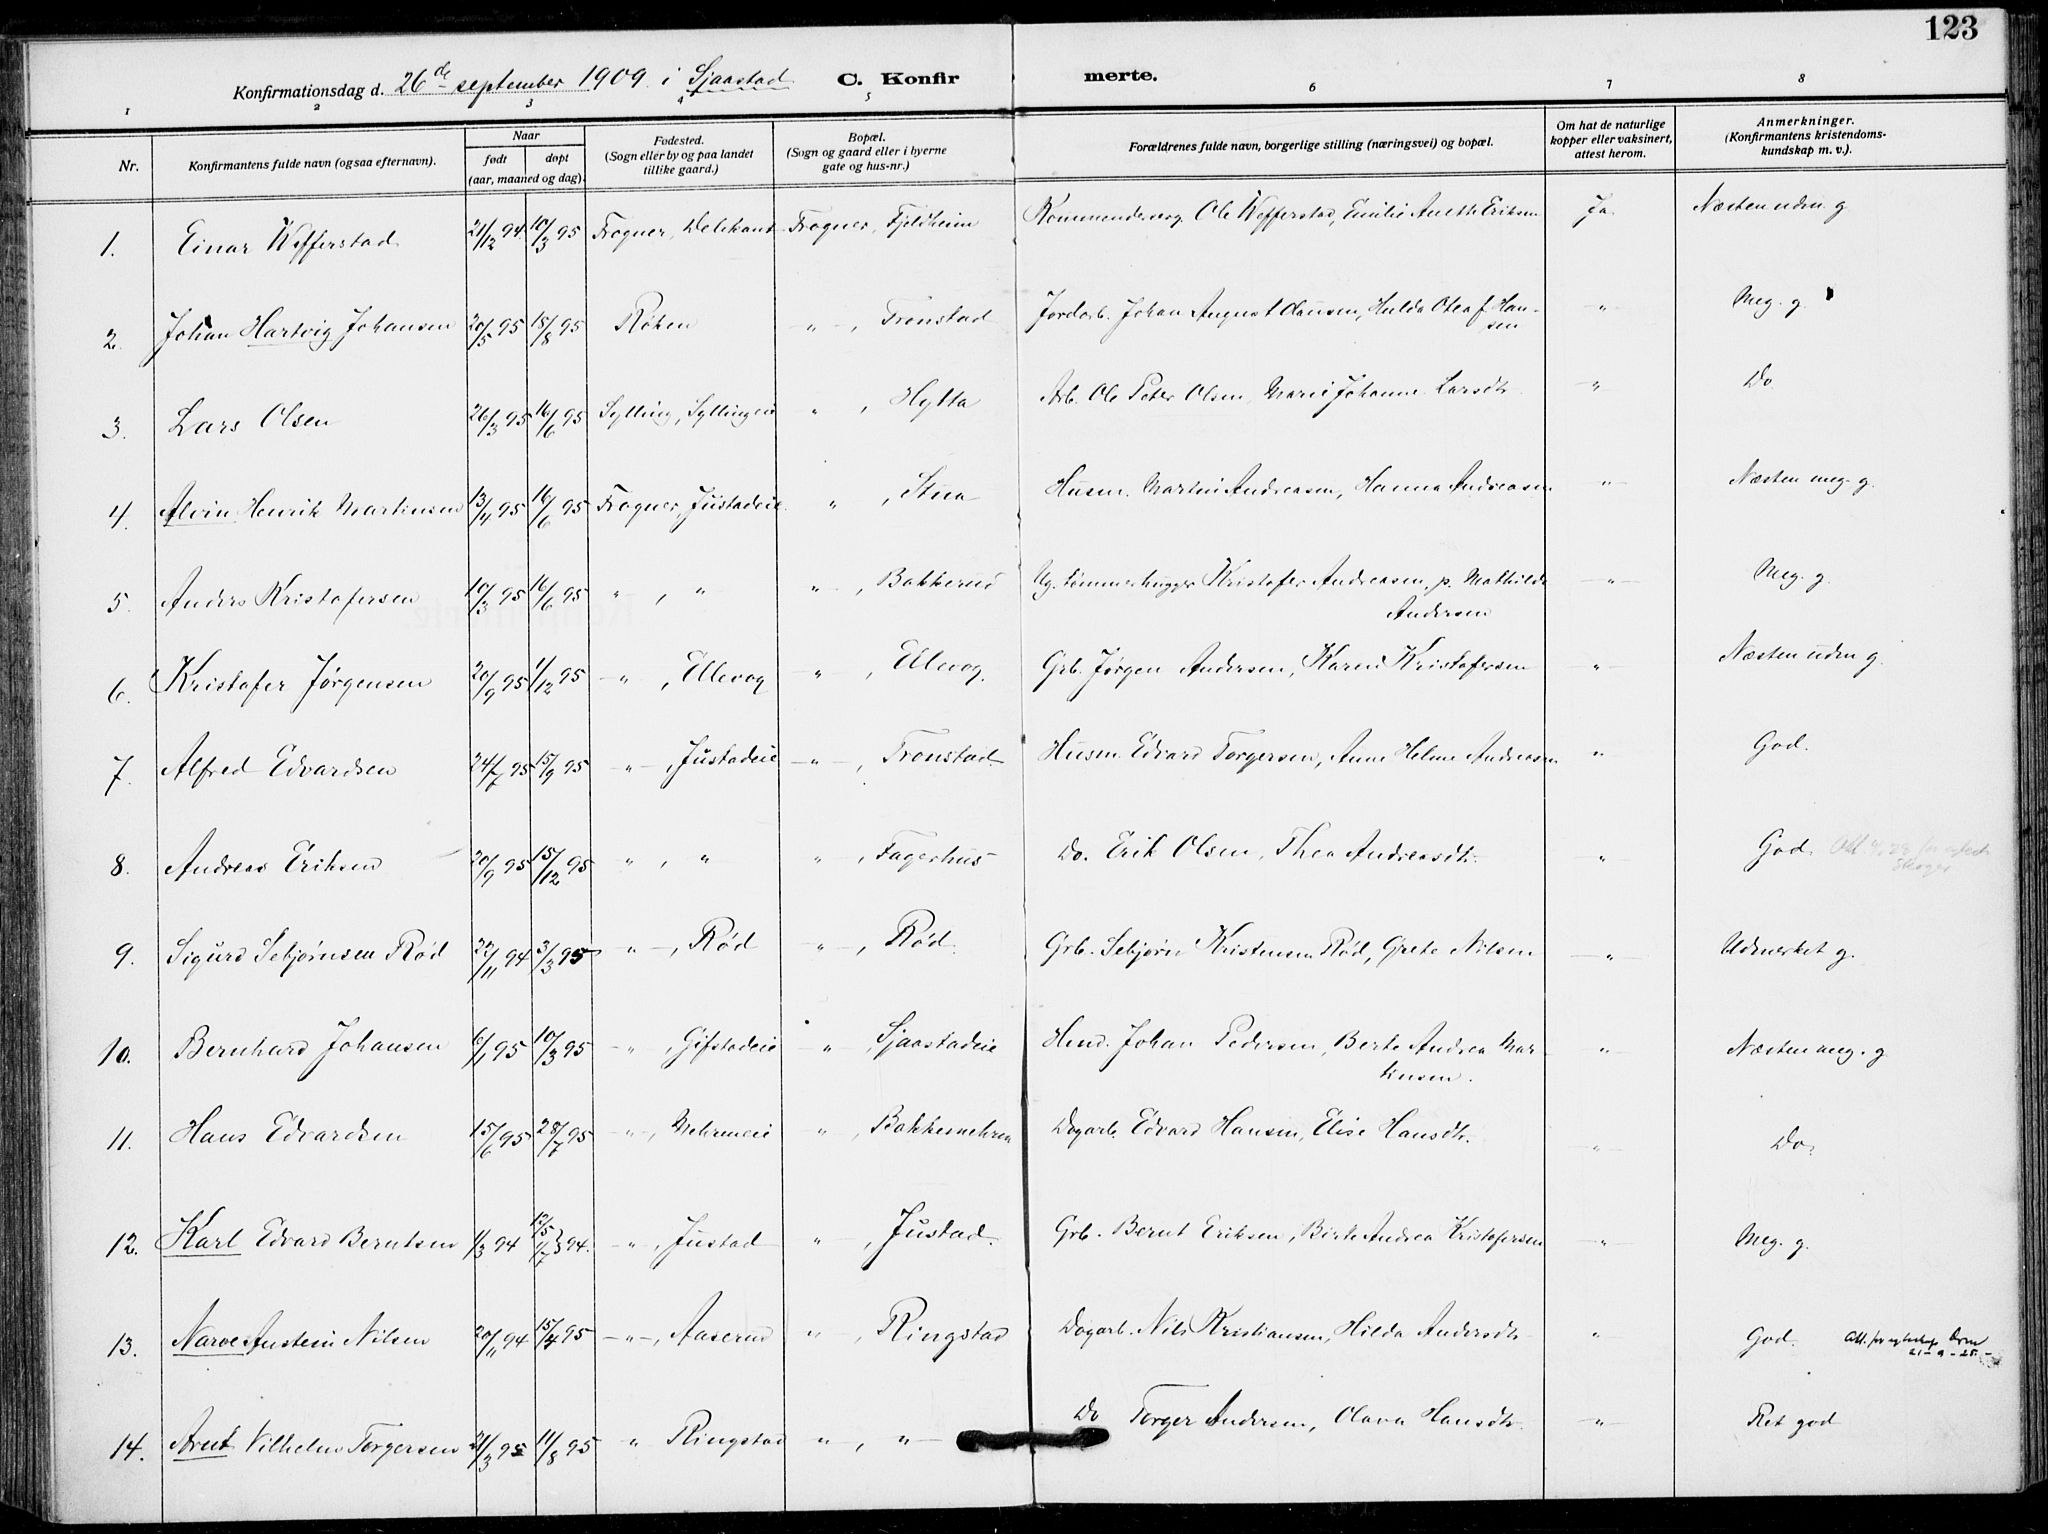 123
Konfirmationsdag d. 26de september 1909 i Sjaastad C. Konfirmerte.
1 2 3 4 5 6 7 8
Nr. Konfirmantens fulde navn (ogsaa efternavn). Naar født døpt (aar, maaned og dag). Fødested. (Sogn eller by og paa landet tillike gaard.) Bopæl. (Sogn og gaard eller i byerne gate og hus-nr.) Forældrenes fulde navn, borgerlige stilling (næringsvei) og bopæl. Om hat de naturlige kopper eller vaksinert, attest herom. Anmerkninger. (Konfirmantens kristendomskundskap m. v.).
1. Einar Wefferstad 21/12 94 10/3 95 Frogner, Frogner, Fjeldheim Ole Wefferstad, Emilie Anethe Eriksen Ja Næsten uden g.
2. Johan Hartvig Johansen 20/5 95 18/8 95 Røken -"-, Tronstad Jordarb. Johan August Hansen, Hulda Oleaf. Hansen " Meg. g.
3. Lars Olsen 26/3 95 16/6 95 Sylling, Syllingeie ", Hytta Arb. Ole Peter Olsen, Marie Johanne Larsdtr. -"- Do
4. Alvin Henrik Martinsen 13/4 95 16/6 95 Frogner, Justadeie ", Stua Husm. Martin Andreasen, Hanna Andreasen " Næsten meg. g.
5. Anders Kristofersen 10/3 95 16/6 95 ", " ", Bakkerud Ug. tømmerhugger Kristofer Andreasen, p. Mathilde Andersen -"- Meg. g.
6. Kristofer Jørgensen 20/9 95 1/12 95 -"-, Ellevog -"-, Ellevog. Grb. Jørgen Andersen, Karen Kristofersen " Næsten uden g.
7. Alfred Edvardsen 24/7 95 15/9 95 -"-, Justadeie -"-, Tronstad. Husm. Edvard Torgersen, Anne Helene Andreasen " God.
8. Andreas Eriksen 20/9 95 15/12 95 ", " ", Fagerhus Do. Erik Olsen, Thea Andreasdtr. " God.
9. Sigurd Sebjørnsen Rød 22/11 94 3/3 95 -"-, Rød -"-, Rød. Grb. Sebjørn Kristensen Rød, Grete Nilsen -"- Udmerket g.
10. Bernhard Johansen 6/1 95 10/3 95 -"-, Gifstadeie ", Sjaastadeie Hand. Johan Pedersen, Berte Andrea Martinsen. " Næsten meg. g
11. Hans Edvardsen 15/6 95 28/7 95 -"-, Mehreneie ", Bakkemehren Dagarb. Edvard Hansen, Elise Hansdtr. -"- Do.
12. Karl Edvard Berntsen 1/3 94 13/5 1/7 } 94. -"-, Justad ", Justad. Grb. Bernt Eriksen, Birte Andrea Kristofersen -"- Meg. g.
13. Narve Anstein Nilsen 20/11 94 15/4 95 -"-, Aaserud ", Ringstad Dagarb. Nils Kristiansen, Hilda Andersdtr. " God. Att. for egteskap Drm 21-9-25.
14. Arnt Vilhelm Torgersen 21/3 95 11/8 95 " Ringstad ", " Do Torger Andersen, Olava Hansdtr. -"- Ret god